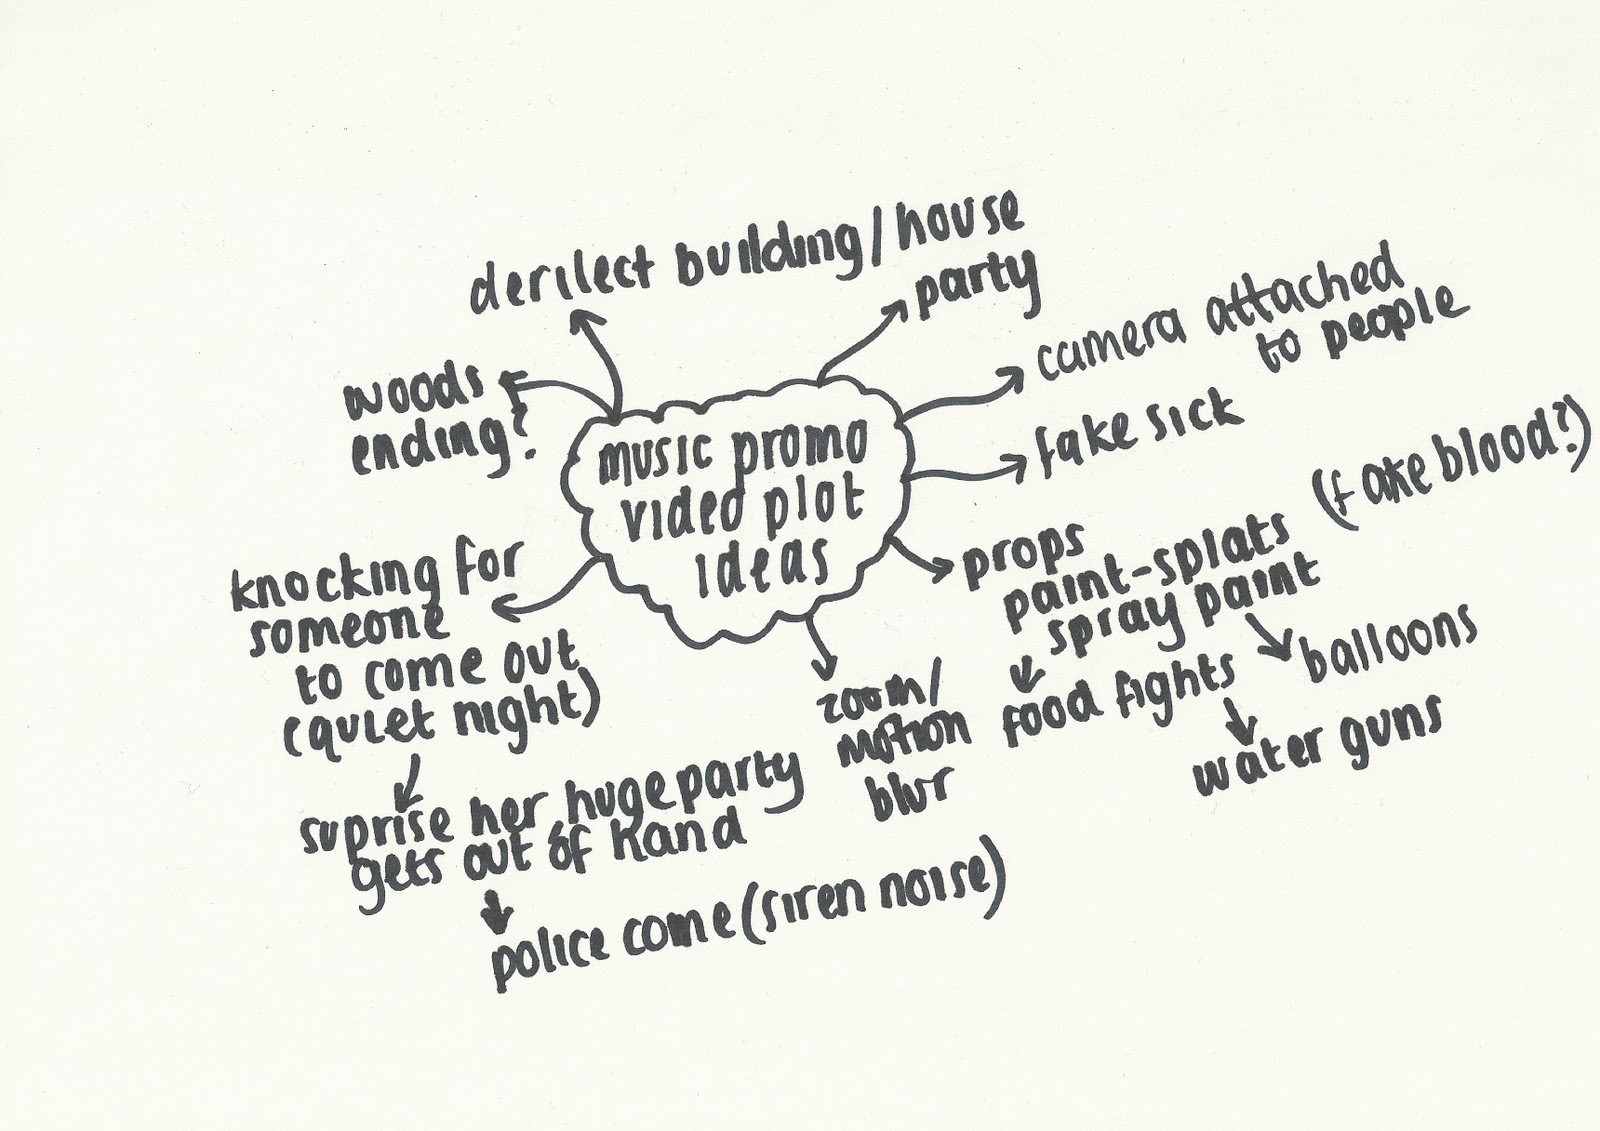 derilect building/house
party
camera attached
to people
woods
ending?
fake sick
music promo
video plot
ideas
(fake blood?)
props
paint-splats
spray paint
balloons
food fights
water guns
knocking for
someone
to come out
(quiet night)
zoom/
motion
blur
suprise her huge party
gets out of hand
police come (siren noise)